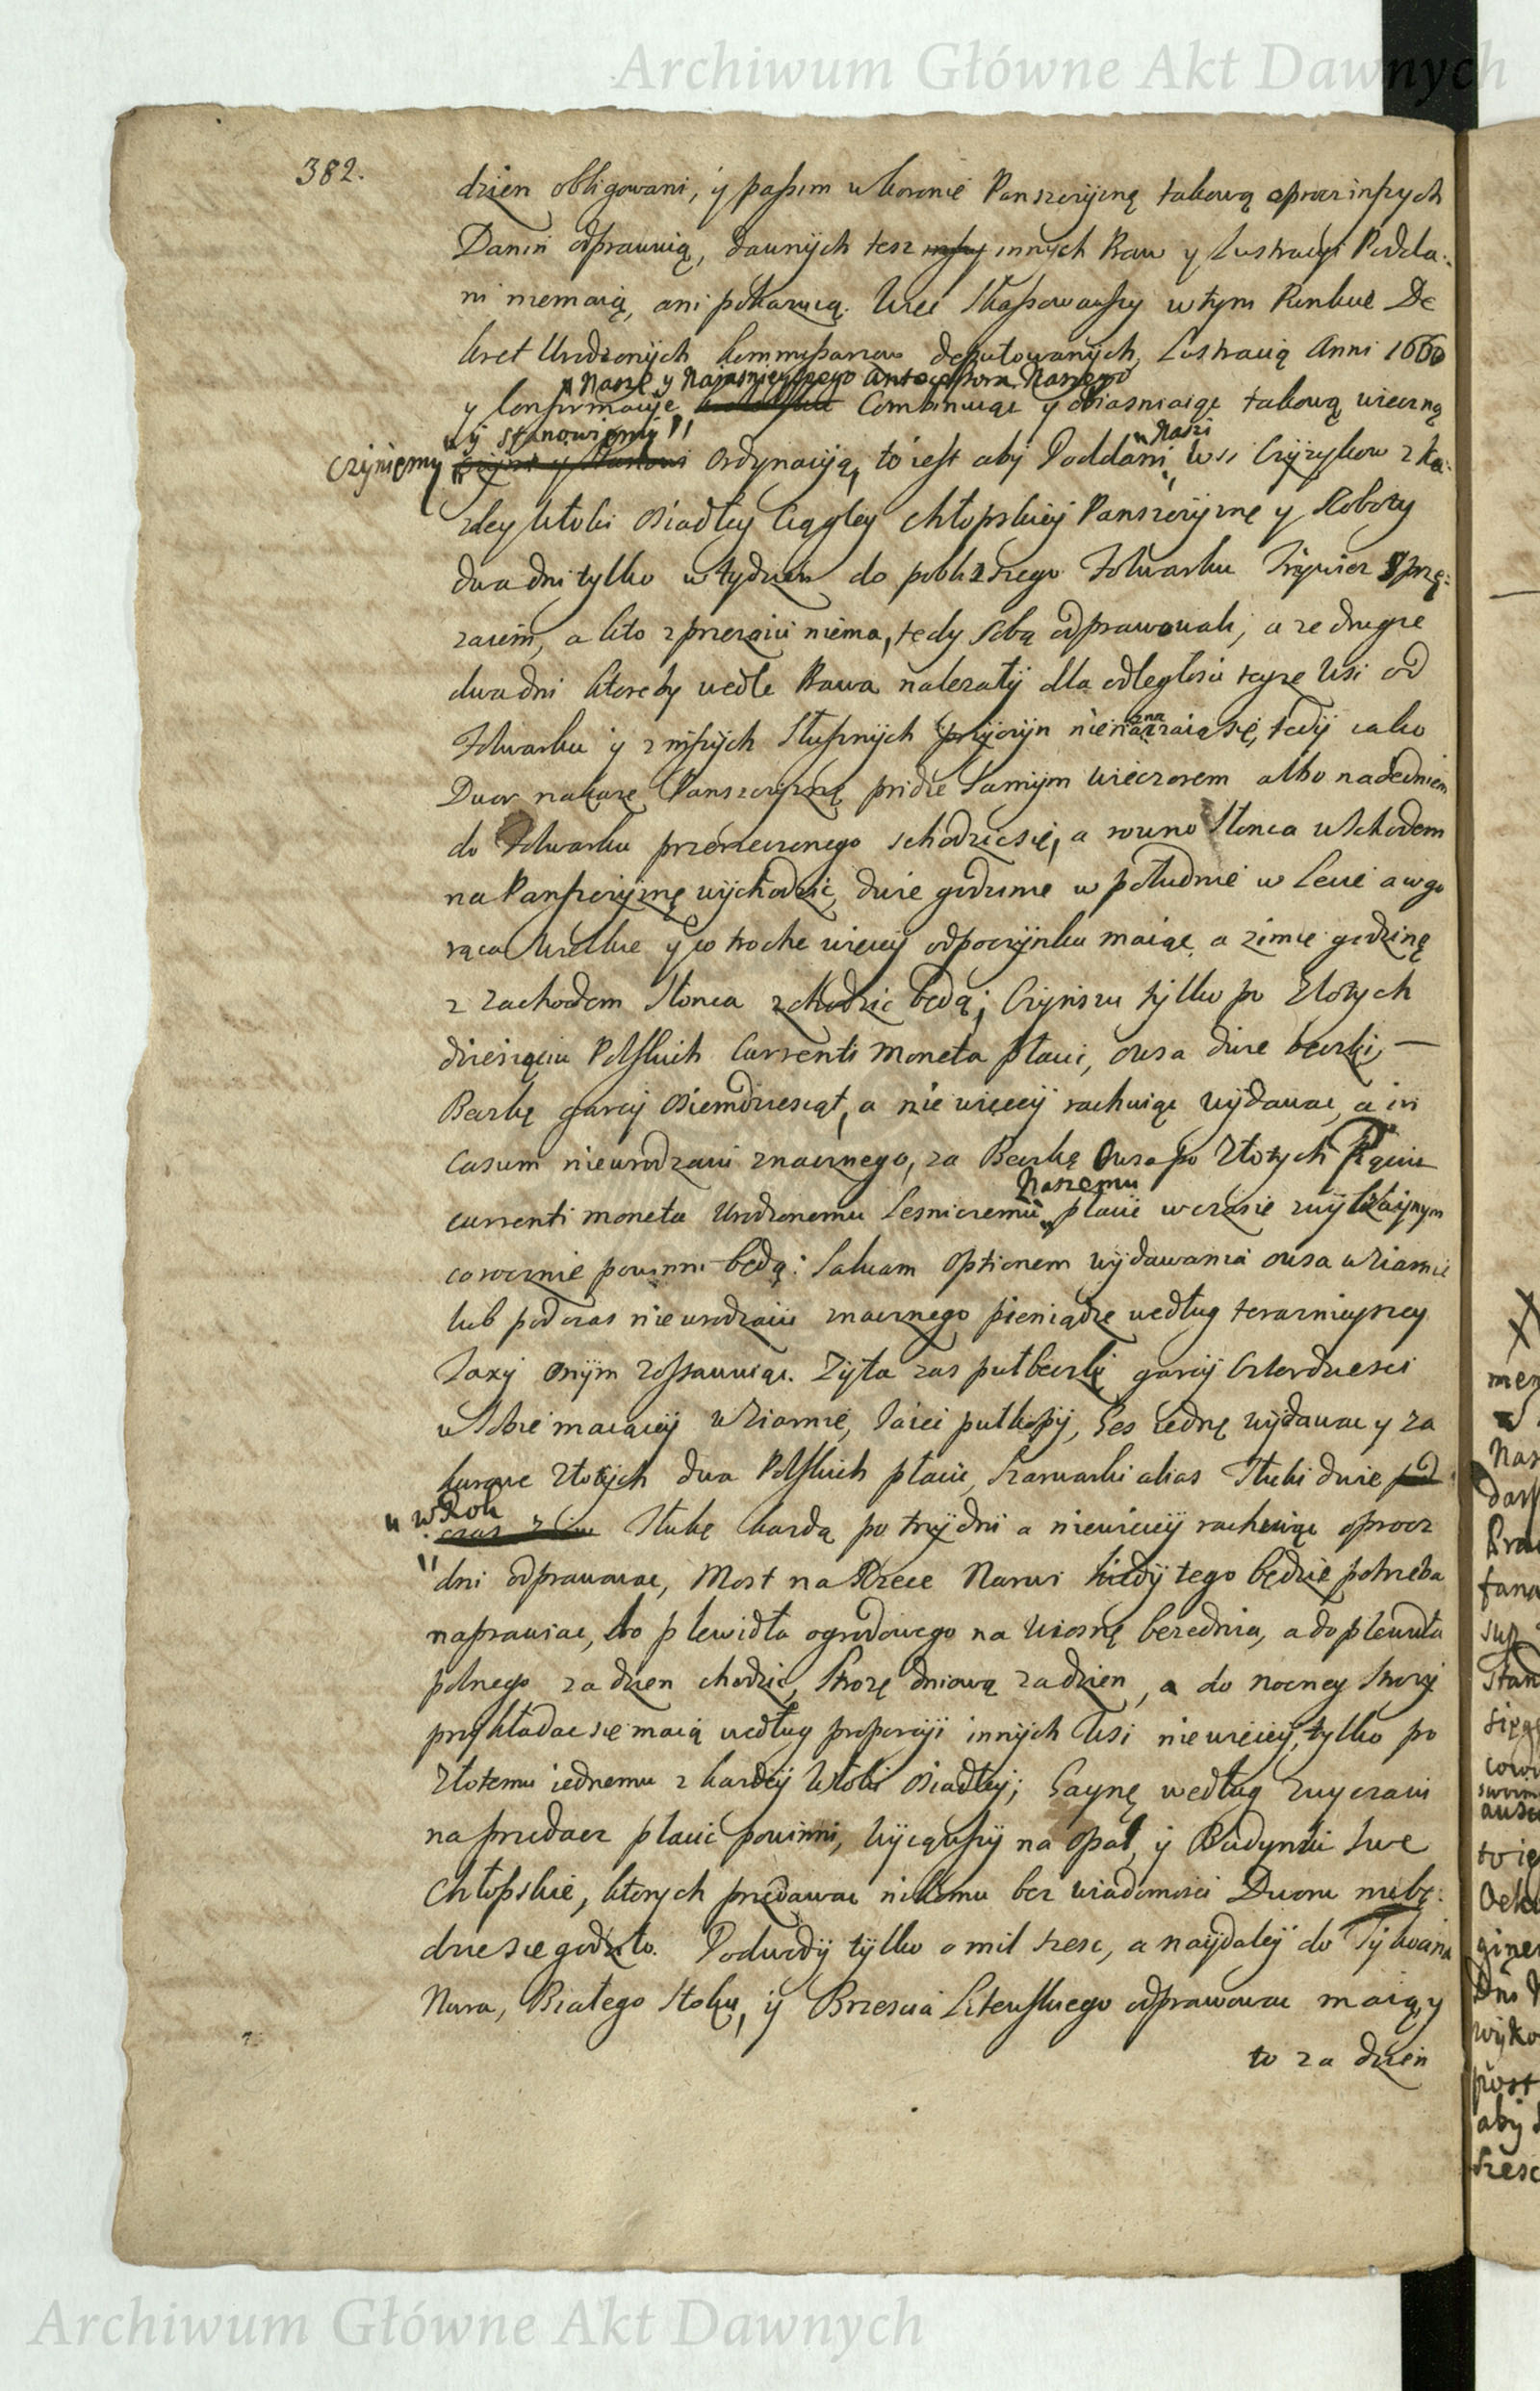 Archiwum Główne Akt Dawnych
382.
dzien obligowani, y passim w koronie Panszczyznę takową oprocz inszych
Danin odprawuią, dawnych tesz inszy innych Praw y Lustracyi Podda-
ni niemaią, ani pokazuią. Więc skassowawszy w tym Punkcie De
kret Urodzonych kommissarzow deputowanych, Lustracią Anni 1660
Nasze y Najasnieyszego Antecessora Naszego
y konfirmacyie Combinuiąc y obiasniaiąc takową wieczną
y stanowiemy
czyniemy Ordynacyią, to iest aby Poddani Nasi Wsi Czyzykow z ka-
zdey włoki osiadłey Ciągłey chłopskiey Panszczyznę y Roboty
dwa dni tylko w tydzien do poblizszego Folwarku Trzywiez sprzę-
zaiem, a kto zprzezaiu niema, tedy sobą odprawowali, a ze drugie
dwa dni ktoreby wedle Prawa nalezały dla odległosci teyze Wsi od
Folwarku y z inszych Słusznych przyczyn nienaznaczaią się, tedy iako
Dwor nakaze Panszczyznę pridie Samym wieczorem albo nadedniem
do Folwarku przerzeczonego schodzic się, a rowno Słonca wschodem
na Panszczyznę wychodzic, dwie godzinie w południe w Lecie a w go
rąca wielkie y co troche więcey odpoczynku maiąc, a zimie godzinę
z zachodem Słonca zchodzic będą; Czynszu tylko po Złotych
dziesięciu Polskich Currenti moneta płacic, owsa dwie beczki, —
Beczkę garcy osiemdziesiąt, a nie więcey rachuiąc wydawac, a in
casum nieurodzaiu znacznego, za Beczkę Owsa po Złotych Pięciu
Naszemu
currenti moneta Urodzonemu Lesniczemu płacic w czasie zwyczaynym
corocznie powinni będą: Salvam Optionem wydawania owsa w ziarnie
lub podczas nieurodzaiu znacznego pieniądze według terazznieyszey
Taxy onym zostawuiąc. Zyta zas puł beczki garcy czterdziesci
w sobie maiącey w ziarnie, Jaiec pułkopy, Ges iednę wydawac y za
kurące Złotych dwa Polskich płacic, szarwarki alias Tłuki dwie pod
w Rok
czas zim Tłukę kazdą po trzy dni a niewięcey rachuiąc oprocz
dni odprawowac, Most na Rzece Narwi kiedy tego będzie potrzeba
naprawiac, do plewidła ogrodowego na wiosnę bezednia, a do plewidła
polnego za dzien chodzic, Strozę dniową za dzien, a do nocney strozy
przykładac się maią według proporcyi innych Wsi niewięcey, tylko po
Złotemu iednemu z kazdey Włoki osiadłey; Gaynę według zwyczaiu
na przedacz płacic powinni, wyiąwszy na opał, y Budynki swe
Chłopskie, ktorych przedawac nikomu bez wiadomosci Dworu niebę-
dzie się godziło. Podwody tylko o mil szesc, a naydaley do Tykocina
Nura, Białego Stoku, y Brzescia Litewskiego odprawowac maią, y
to za dzien
Archiwum Główne Akt Dawnych